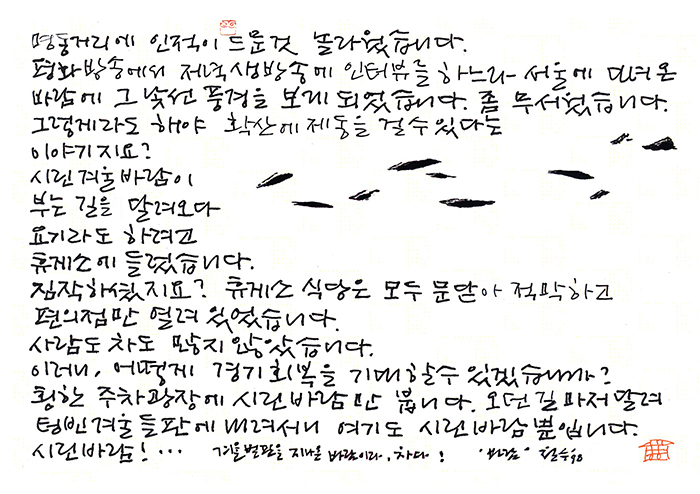 명동거리에 인적이 드문것 놀라웠습니다.
평화방송에서 저녁 생방송에 인터뷰를 하느라 서울에 다녀온
바람에 그 낯선 풍경을 보게 되었습니다. 좀 무서웠습니다.
그렇게라도 해야 확산에 제동을 걸 수 있다는
이야기지요?
시린 겨울바람이
부는 길을 달려오다
요기라도 하려고
휴게소에 들렸습니다.
짐작하셨지요? 휴게소 식당은 모두 문닫아 적막하고
편의점만 열려 있었습니다.
사람도 차도 많지 않았습니다.
이러니, 어떻게 경기회복을 기대할 수 있겠습니까?
휑한 주차광장에 시린바람만 붑니다. 오던길 마저 달려
텅빈겨울 들판에 내려서니 여기도 시린 바람뿐입니다.
시린바람!··· 겨울벌판을 지나온 바람이라, 차다! "바람" 철수90